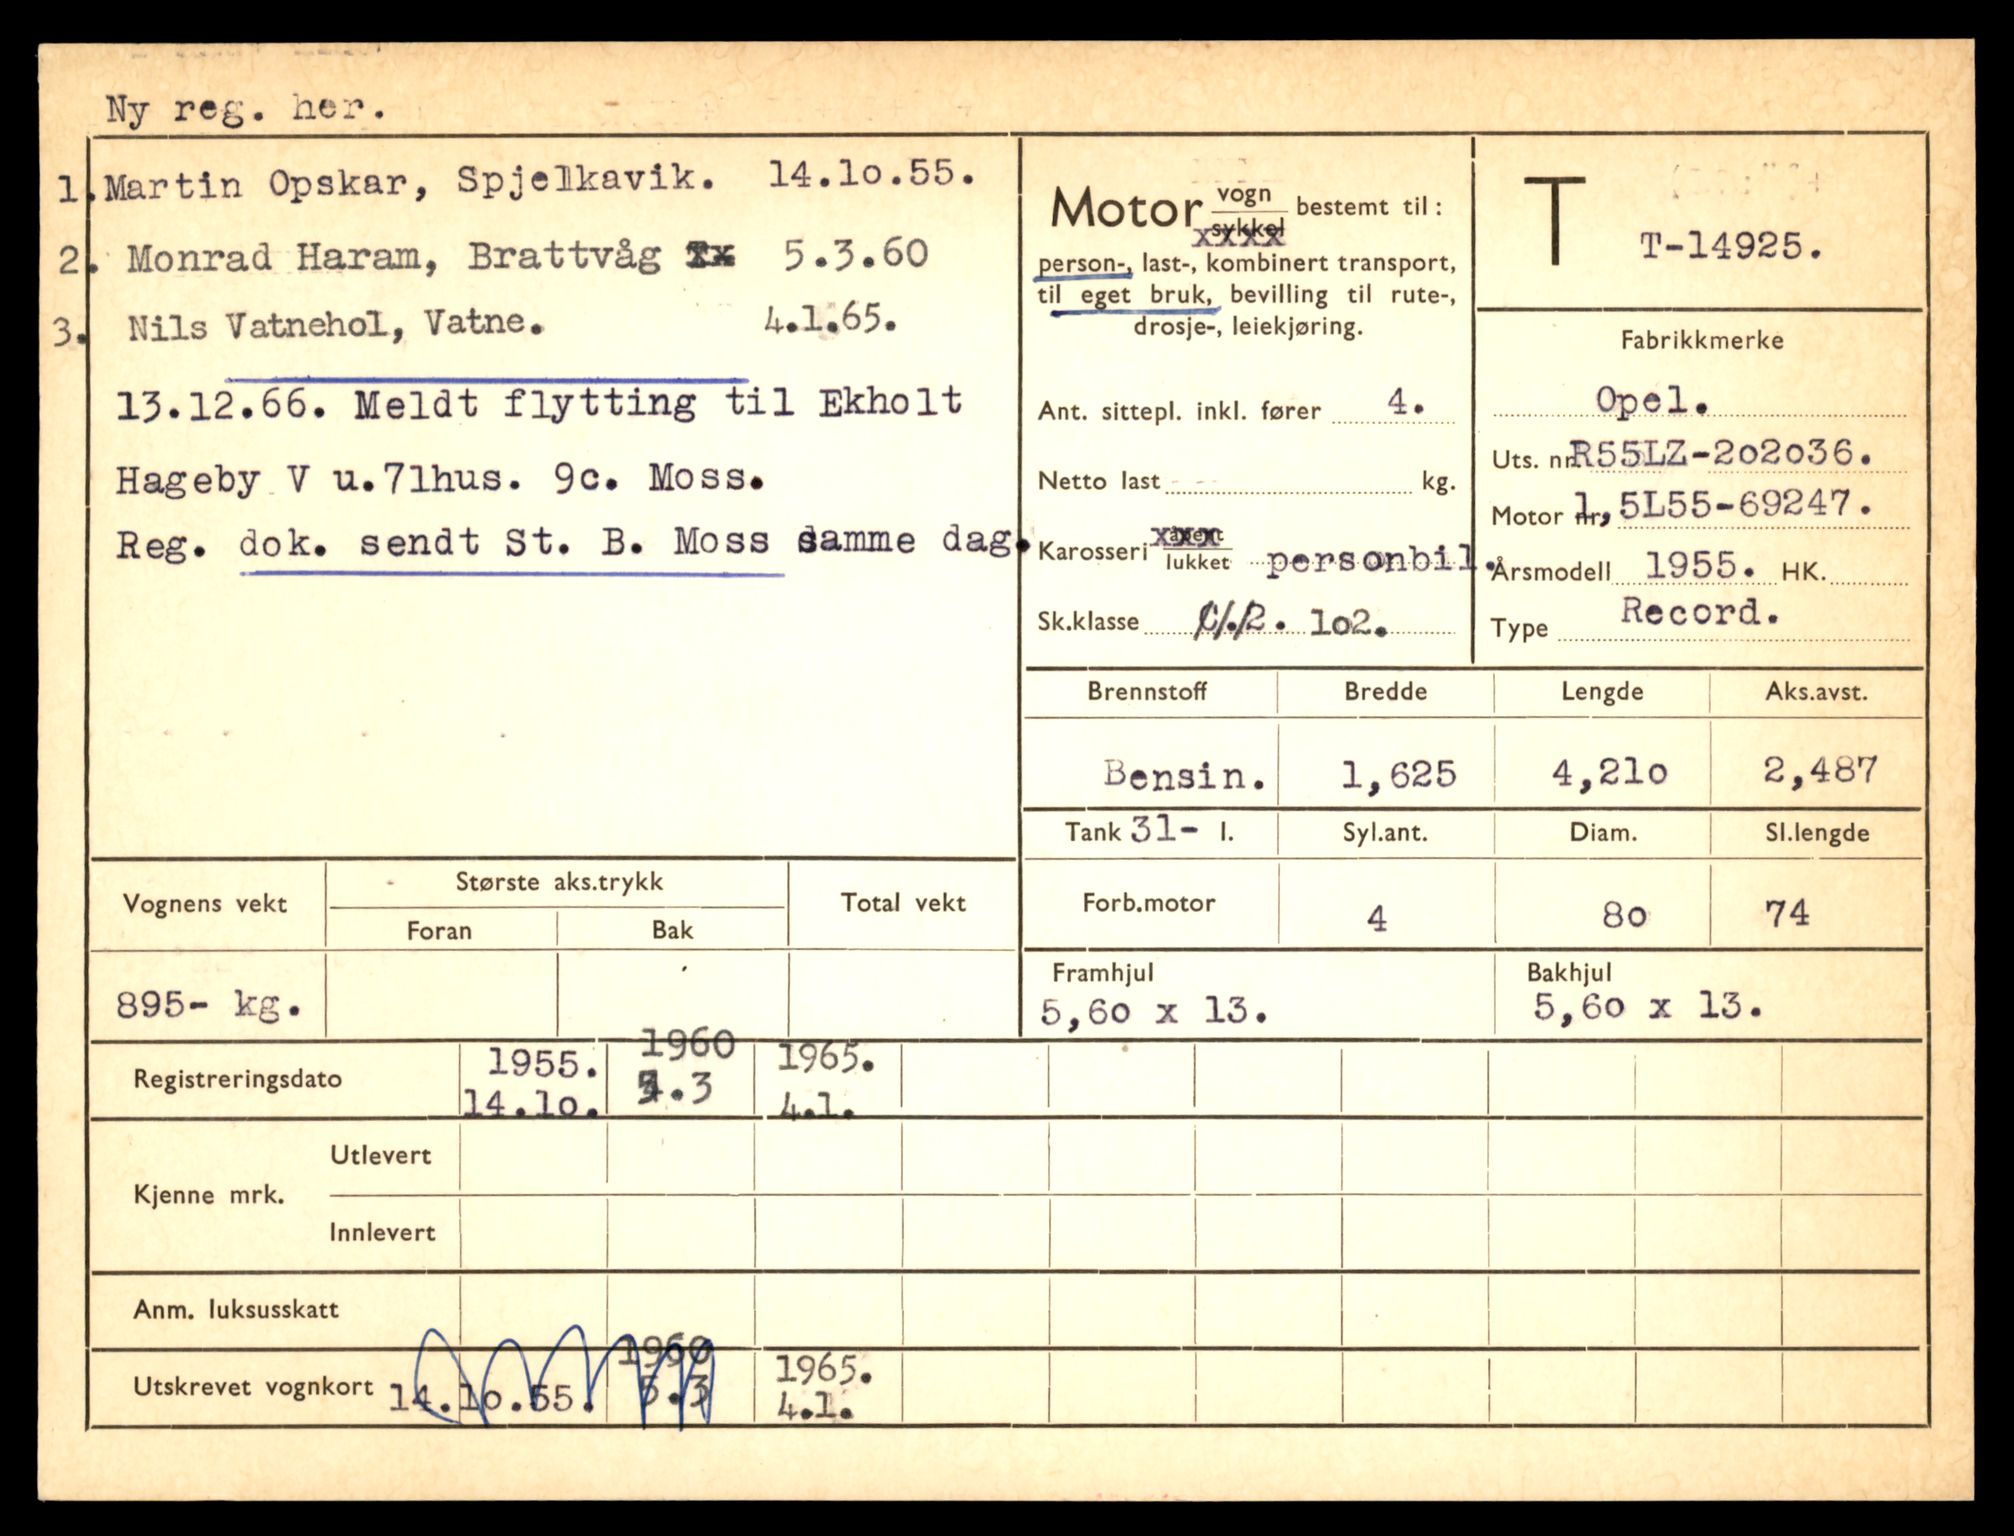 Ny reg. her.
1. Martin Opskar, Spjelkavik. 14.10.55.
2. Monrad Haram, Brattvåg 5.3.60
3. Nils Vatnehol, Vatne. 4.1.65.
13.12.66. Meldt flytting til Ekholt
Hageby V u.71hus. 9c. Moss.
Reg. dok. sendt St. B. Moss samme dag.
Motor vogn
sykkel
bestemt til:
person-, last-, kombinert transport,
til eget bruk, bevilling til rute-,
drosje-, leiekjøring.
Ant. sittepl. inkl. fører 4.
Netto last kg.
Karosseri åpent
lukket personbil.
Sk.klasse C/.2. 102.
T T-14925.
Fabrikkmerke
Opel.
Uts. nr. R55LZ-202036.
Motor nr. 1,5L55-69247.
Årsmodell 1955. HK.
Type Record.
Brennstoff Bredde Lengde Aks.avst.
Bensin. 1,625 4,210 2,487
Tank 31- l. Syl.ant. Diam. Sl.lengde
Forb.motor 4 80 74
Framhjul Bakhjul
5,60 x 13. 5,60 x 13.
Vognens vekt Største aks.trykk Total vekt
Foran Bak
895- kg.
Registreringsdato 1955. 1960 1965.
14.10. 5.3 4.1.
Kjenne mrk. Utlevert
Innlevert
Anm. luksusskatt
Utskrevet vognkort 14.10.55. 1960 1965.
5.3 4.1.